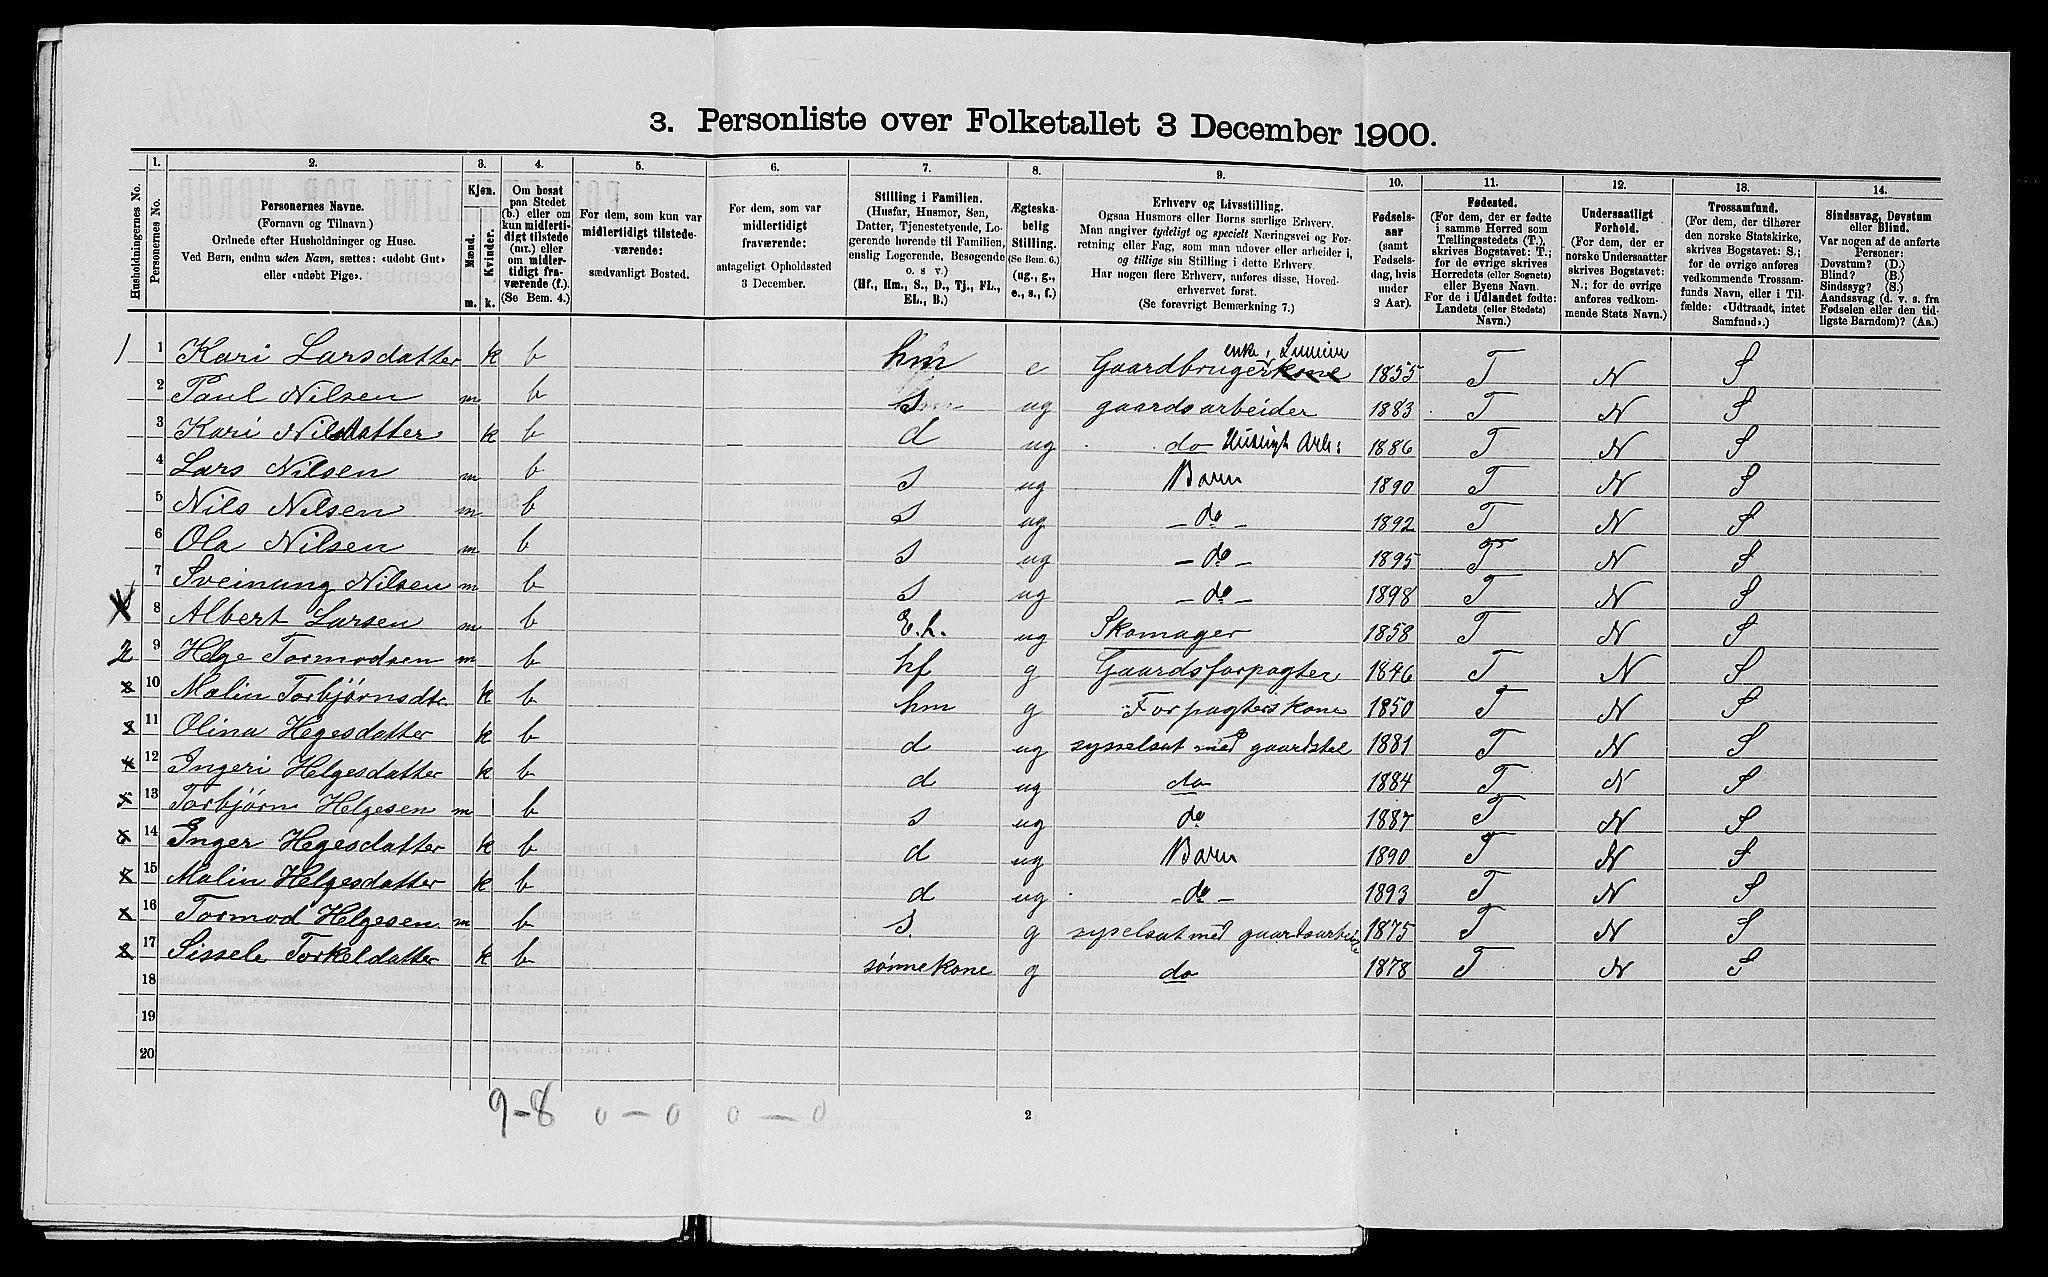 3. Personliste over Folketallet 3 December 1900.
1. 2. 3. 4. 5. 6. 7. 8. 9. 10. 11. 12. 13. 14.
Husholdningernes No.
Personernes No.
Personernes Navne.
(Fornavn og Tilnavn)
Ordnede efter Husholdninger og Huse.
Ved Børn, endnu uden Navn, sættes: «udøbt Gut»
eller «udøbt Pige».
Kjøn.
Mænd.
Kvinder.
m. k.
Om bosat
paa Stedet
(b.) eller om
kun midlerti-
digt tilstede
(mt.) eller
om midler-
tidigt fra-
værende (f.).
(Se Bem. 4.)
For dem, som kun var
midlertidigt tilstede-
værende:
sædvanligt Bosted.
For dem, som var
midlertidigt
fraværende:
antageligt Opholdssted
3 December.
Stilling i Familien.
(Husfar, Husmor, Søn,
Datter, Tjenestetyende, Lo-
gerende hørende til Familien,
enslig Logerende, Besøgende
o. s v.)
(Hf., Hm., S., D., Tj., FL.,
EL., B.)
Ægteska-
belig
Stilling.
(Se Bem. 6.)
(ug., g.,
e., s., f.)
Erhverv og Livsstilling.
Ogsaa Husmors eller Børns særlige Erhverv.
Man angiver tydeligt og specielt Næringsvei og For-
retning eller Fag, som man udover eller arbeider i,
og tillige sin Stilling i dette Erhverv.
Har nogen flere Erhverv, anføres disse, Hoved-
erhvervet først.
(Se forøvrigt Bemærkning 7.)
Fødsels-
aar
(samt
Fødsels-
dag, hvis
under
2 Aar).
Fødested.
(For dem, der er fødte
i samme Herred som
Tællingsstedets (T.),
skrives Bogstavet: T.;
for de øvrige skrives
Herredets (eller Sognets)
eller Byens Navn.
For de i Udlandet fødte:
Landets (eller Stedets)
Navn.)
Undersaatligt
Forhold.
(For dem, der er
norske Undersaatter
skrives Bogstavet:
N.; for de øvrige
anføres vedkom-
mende Stats Navn.)
Trossamfund.
(For dem, der tilhører
den norske Statskirke,
skrives Bogstavet: S.;
for de øvrige anføres
vedkommende Trossam-
funds Navn, eller i Til-
fælde: «Udtraadt, intet
Samfund».)
Sindssvag, Døvstum
eller Blind.
Var nogen af de anførte
Personer:
Døvstum? (D.)
Blind? (B.)
Sindssyg? (S.)
Aandssvag (d. v. s. fra
Fødselen eller den tid-
ligste Barndom)? (Aa.)
1 1 Kari Larsdatter k b hm e Gaardbruger enke, kone 1855 T N S
2 Paul Nilsen m b s ug gaardsarbeider 1883 T N S
3 Kari Nilsdatter k b d ug do Husligt Arb: 1886 T N S
4 Lars Nilsen m b s ug Barn 1890 T N S
5 Nils Nilsen m b s ug - do - 1892 T N S
6 Ola Nilsen m b s ug - do - 1895 T N S
7 Sveinung Nilsen m b s ug - do - 1898 T N S
8 Albert Larsen m b E.l. ug Skomager 1858 T N S
2 9 Helge Tormodsen m b hf g Gaardsforpagter 1846 T N S
x 10 Malin Torbjørnsdtr. k b hm g Forpagterskone 1850 T N S
x 11 Olina Hegesdatter k b d ug sysselsat med gaardstel 1881 T N S
x 12 Ingeri Helgesdatter k b d ug do 1884 T N S
x 13 Torbjørn Helgesen m b s ug do 1887 T N S
x 14 Inger Hegesdatter k b d ug Barn 1890 T N S
x 15 Malin Helgesdatter k b d ug - do - 1893 T N S
x 16 Tormod Helgesen m b s g sysselsat med gaardsarbeide 1875 T N S
x 17 Sissele Torkeldatter k b sønnekone g do 1878 T N S
18
19
20
9-8 0-0 0-0
2